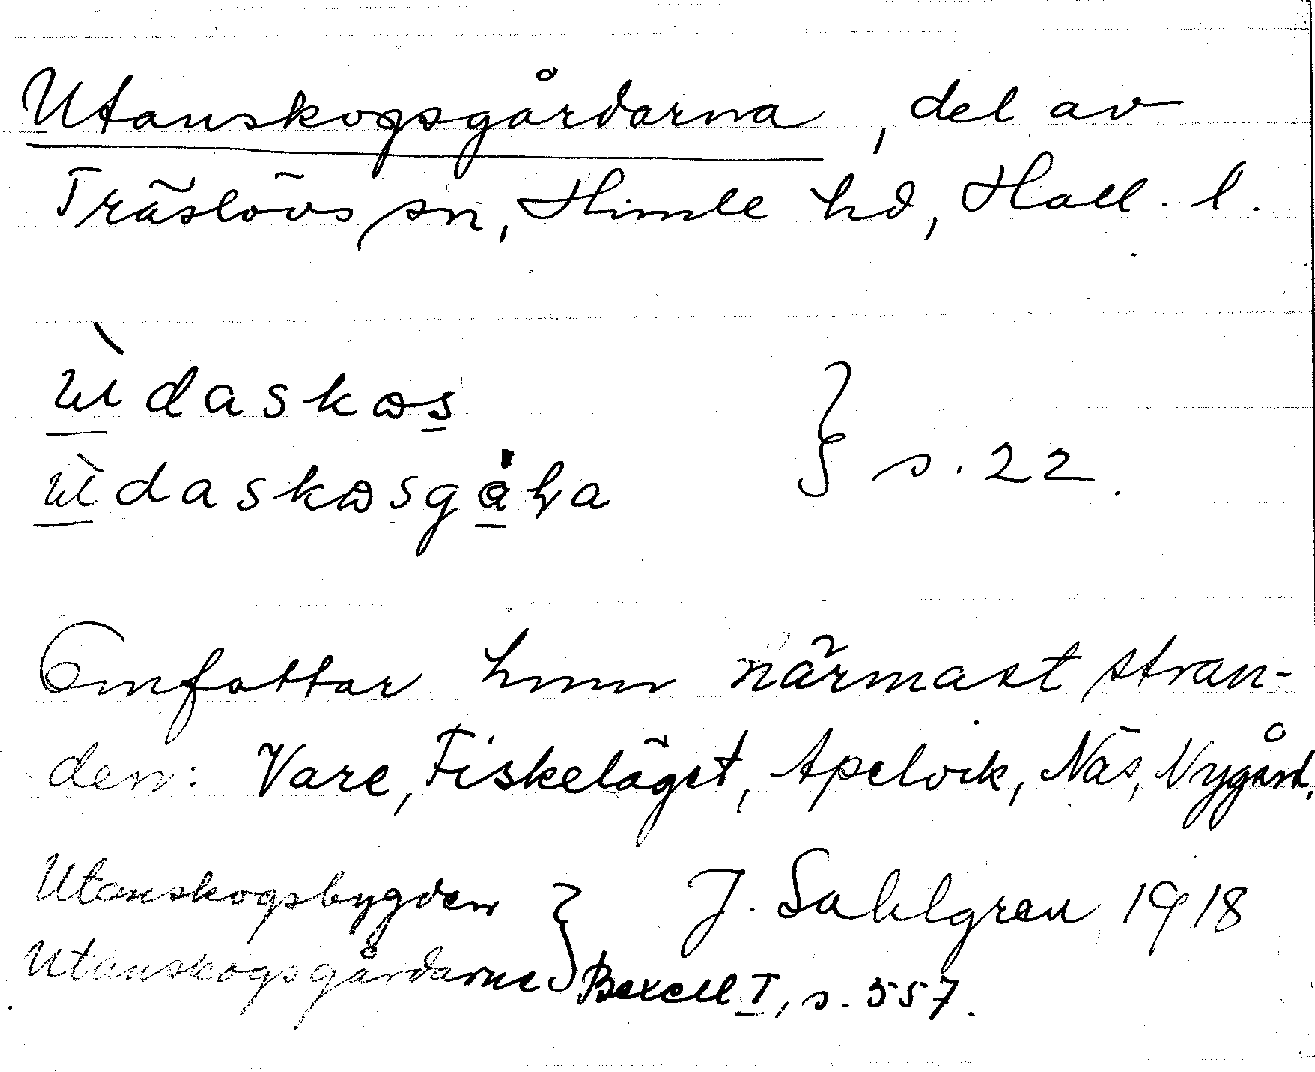 Utanskogsgårdarna, del av
Träslövs sn, Himle hd, Hall. l.
ùdaskøs } s. 22.
ùdaskøsgåha
Omfattar hmn närmast stran-
den: Vare, Fiskeläget, Apelvik, Näs, Nygård.
Utanskogsbygden } J. Sahlgren 1918
Utanskogsgårdarne } Bexell I, s. 557.